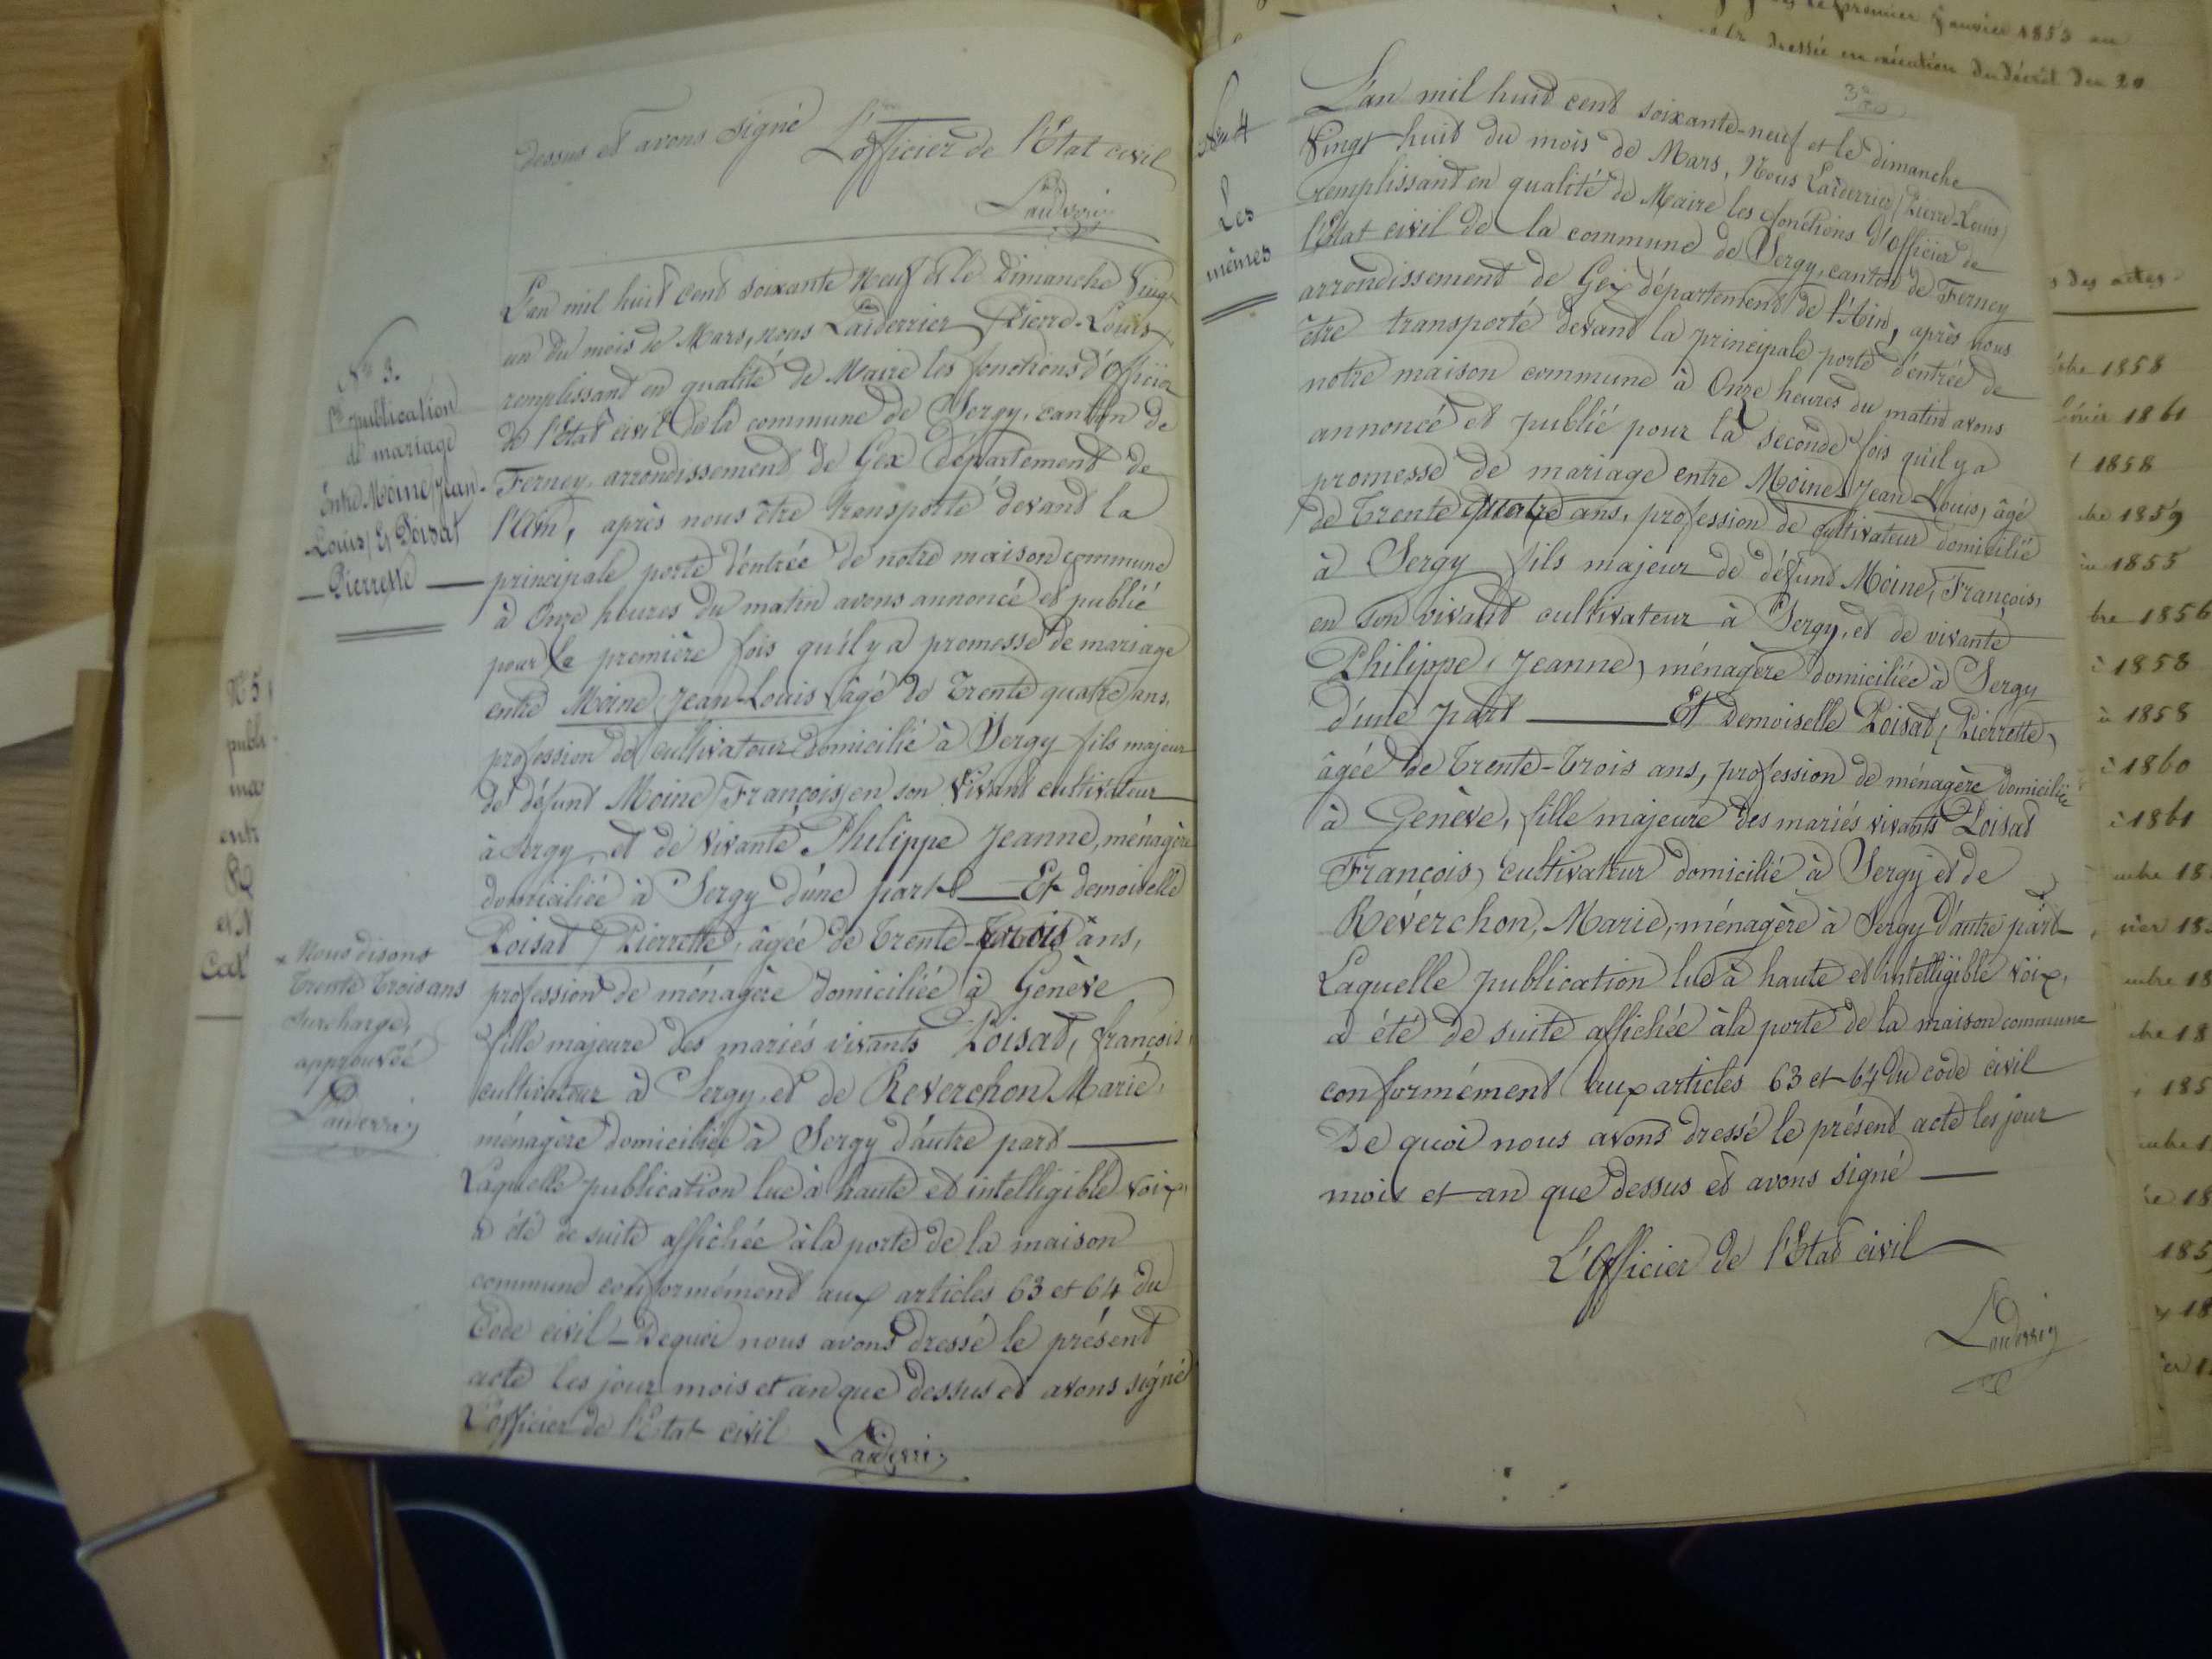 dessus et avons signé L'officier de l'Etat civil
N° 3.
1re publication
de mariage
Entre Moine Jean-
Louis, & Poisat
Pierrette
L'an mil huit cent soixante Neuf et le Dimanche Vingt
un du mois de Mars, nous Laiderrier Pierre-Louis
remplissant en qualité de Maire les fonctions d'Officier
de l'Etat civil de la commune de Sergy, canton de
Ferney, arrondissement de Gex département de
l'Ain, après nous être transporté devant la
principale porte d'entrée de notre maison commune
à Onze heures du matin avons annoncé et publié
pour la première fois qu'il y a promesse de mariage
entre Moine Jean-Louis âgé de Trente quatre ans,
profession de cultivateur domicilié à Sergy fils majeur
de défunt Moine François en son Vivant cultivateur
à Sergy, et de vivante Philippe Jeanne, ménagère
domiciliée à Sergy d'une part — Et demoiselle
Poisat, Pierrette, âgée de Trente-trois ans,
profession de ménagère domiciliée à Genève
fille majeure des mariés vivants Poisat, françois,
cultivateur à Sergy, et de Reverchon Marie,
ménagère domiciliée à Sergy d'autre part —
Laquelle publication lue à haute et intelligible voix,
a été de suite affichée à la porte de la maison
commune conformément aux articles 63 et 64 du
Code civil — De quoi nous avons dressé le présent
acte les jour mois et an que dessus et avons signé
L'officier de l'Etat civil
Nous disons
Trente Trois ans
Surcharge,
approuvée
N° 4
Les
mêmes
L'an mil huit cent soixante-neuf et le dimanche
Vingt huit du mois de Mars, Nous Laiderrier, Pierre-Louis,
remplissant en qualité de Maire les fonctions d'Officier de
l'Etat civil de la commune de Sergy, canton de Ferney
arrondissement de Gex département de l'Ain, après nous
être transporté devant la principale porte d'entrée de
notre maison commune à Onze heures du matin avons
annoncé et publié pour la seconde fois qu'il y a
promesse de mariage entre Moine Jean-Louis, âgé
de Trente Quatre ans, profession de cultivateur domicilié
à Sergy fils majeur de défunt Moine, François,
en son vivant cultivateur à Sergy, et de vivante
Philippe, Jeanne, ménagère domiciliée à Sergy
d'une part — Et Demoiselle Poisat, Pierrette,
âgée de Trente-Trois ans, profession de ménagère domiciliée
à Genève, fille majeure des mariés vivants Poisat
François, cultivateur domicilié à Sergy et de
Reverchon, Marie, ménagère à Sergy d'autre part
Laquelle publication lue à haute et intelligible voix,
a été de suite affichée à la porte de la maison commune
conformément aux articles 63 et 64 du code civil
De quoi nous avons dressé le présent acte les jour
mois et an que dessus et avons signé —
L'Officier de l'Etat civil
premier Janvier 1853 au
dressée en exécution du décret du 20
des actes
1858
1861
1858
1859
1855
1856
1858
1858
1860
1861